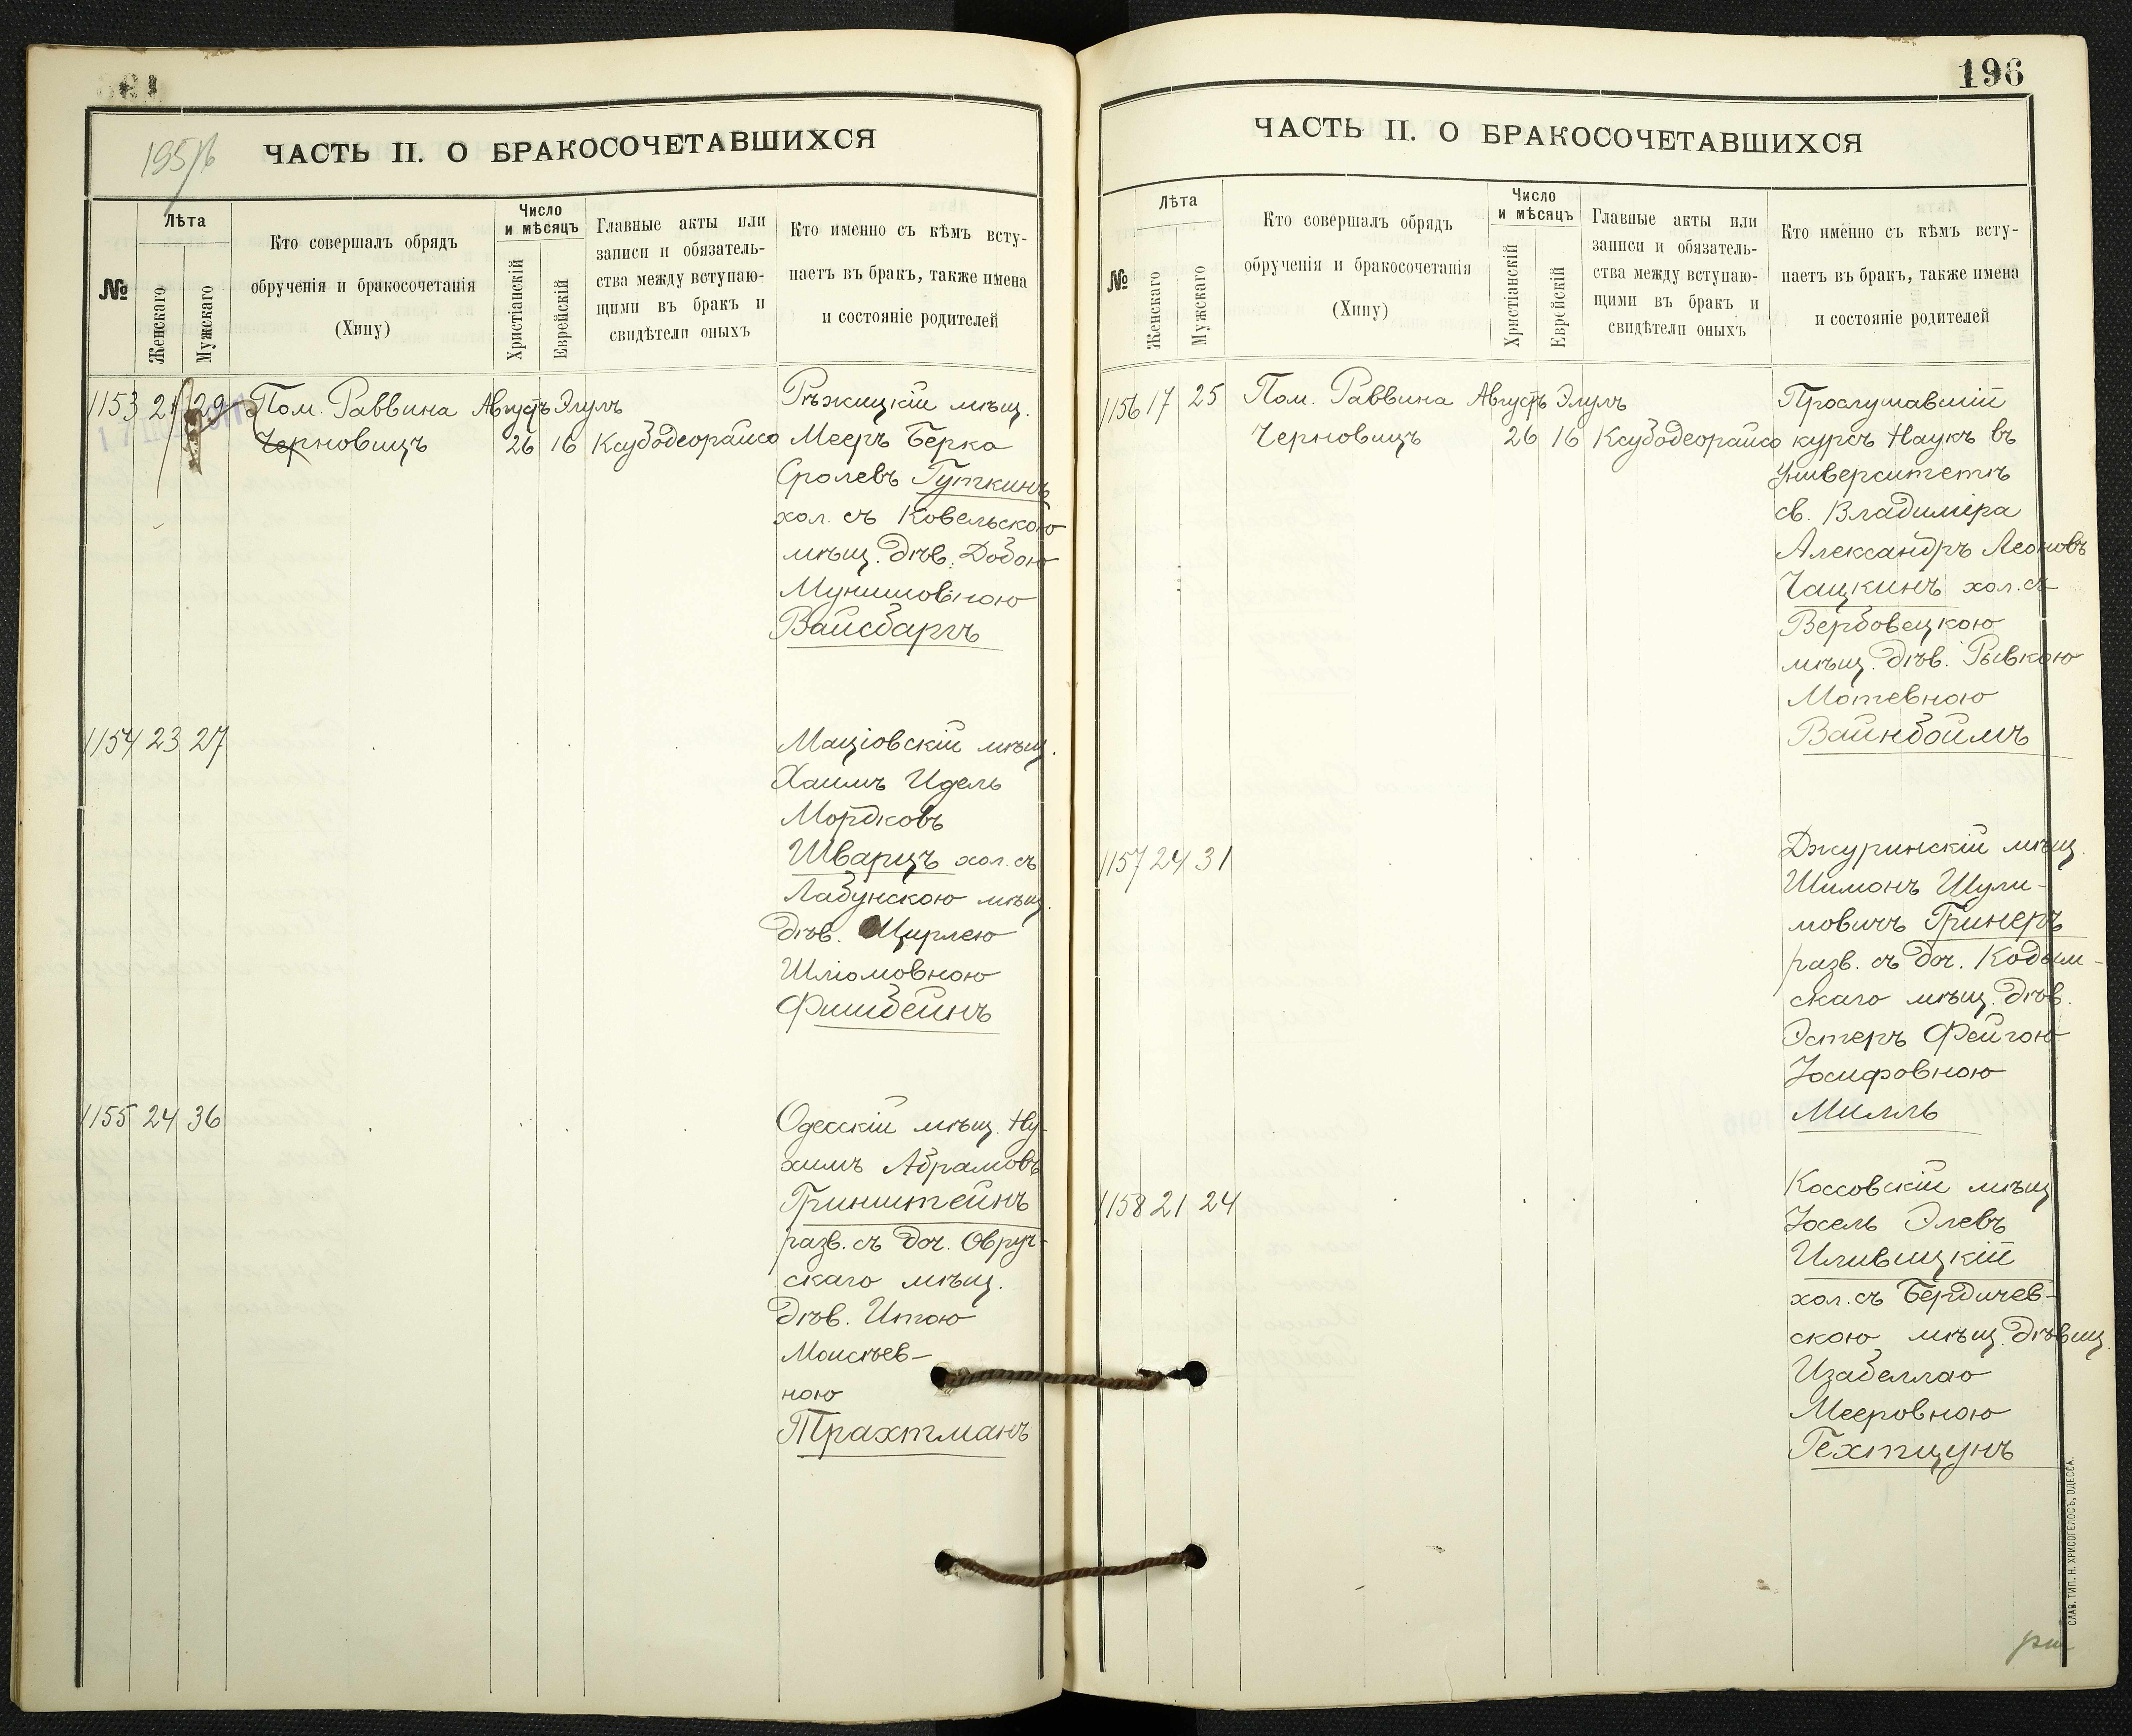 195/б
ЧАСТЬ II. О БРАКОСОЧЕТАВШИХСЯ
№
Лѣта
Женскаго
Мужскаго
Кто совершалъ обрядъ
обрученія и бракосочетанія
(Хипу)
Число
и мѣсяцъ
Христіанскій
Еврейскій
Главные акты или
записи и обязатель-
ства между вступаю-
щими въ бракъ и
свидѣтели оныхъ
Кто именно съ кѣмъ всту-
паетъ въ бракъ, также имена
и состояніе родителей
1153 21 29 Пом. Раввина Августъ Элулъ Рѣжицкій мѣщ.
Черновицъ 26 16 Ксубодеорайсо Мееръ Берка
Сролевъ Гуткинъ
хол. съ Ковельскою
мѣщ. дѣв. Добою
Мунишовною
Вайсбаргъ
1154 23 27 Маціовскій мѣщ.
Хаимъ Идель
Мордковъ
Шварцъ хол. съ
Лабунскою мѣщ.
дѣв. Цирлею
Шліомовною
Фишбейнъ
1155 24 36 Одесскій мѣщ. Ну-
химъ Абрамовъ
Гринштейнъ
разв. съ доч. Овруч-
скаго мѣщ.
дѣв. Итою
Моисѣев-
ною
Трахтманъ
196
ЧАСТЬ II. О БРАКОСОЧЕТАВШИХСЯ
№
Лѣта
Женскаго
Мужскаго
Кто совершалъ обрядъ
обрученія и бракосочетанія
(Хипу)
Число
и мѣсяцъ
Христіанскій
Еврейскій
Главные акты или
записи и обязатель-
ства между вступаю-
щими въ бракъ и
свидѣтели оныхъ
Кто именно съ кѣмъ всту-
паетъ въ бракъ, также имена
и состояніе родителей
1156 17 25 Пом. Раввина Августъ Элулъ Прослушавшій
Черновицъ 26 16 Ксубодеорайсо курсъ Наукъ въ
Университетѣ
св. Владиміра
Александръ Леоновъ
Чацкинъ хол. съ
Вербовецкою
мѣщ. дѣв. Рывкою
Мотевною
Вайнбоймъ
1157 24 31 Джуринскій мѣщ.
Шимонъ Шули-
мовичъ Гринеръ
разв. съ доч. Кодым-
скаго мѣщ. дѣв.
Эстеръ Фейгою
Іосифовною
Милль
1158 21 24 Коссовскій мѣщ
Іосель Элевъ
Иливицкій
хол. съ Бердичев-
скою мѣщ. дѣвиц.
Изабеллаю
Мееровною
Гехтцунъ
СЛАВ. ТИП. Н. ХРИСОГЕЛОСЪ, ОДЕССА.